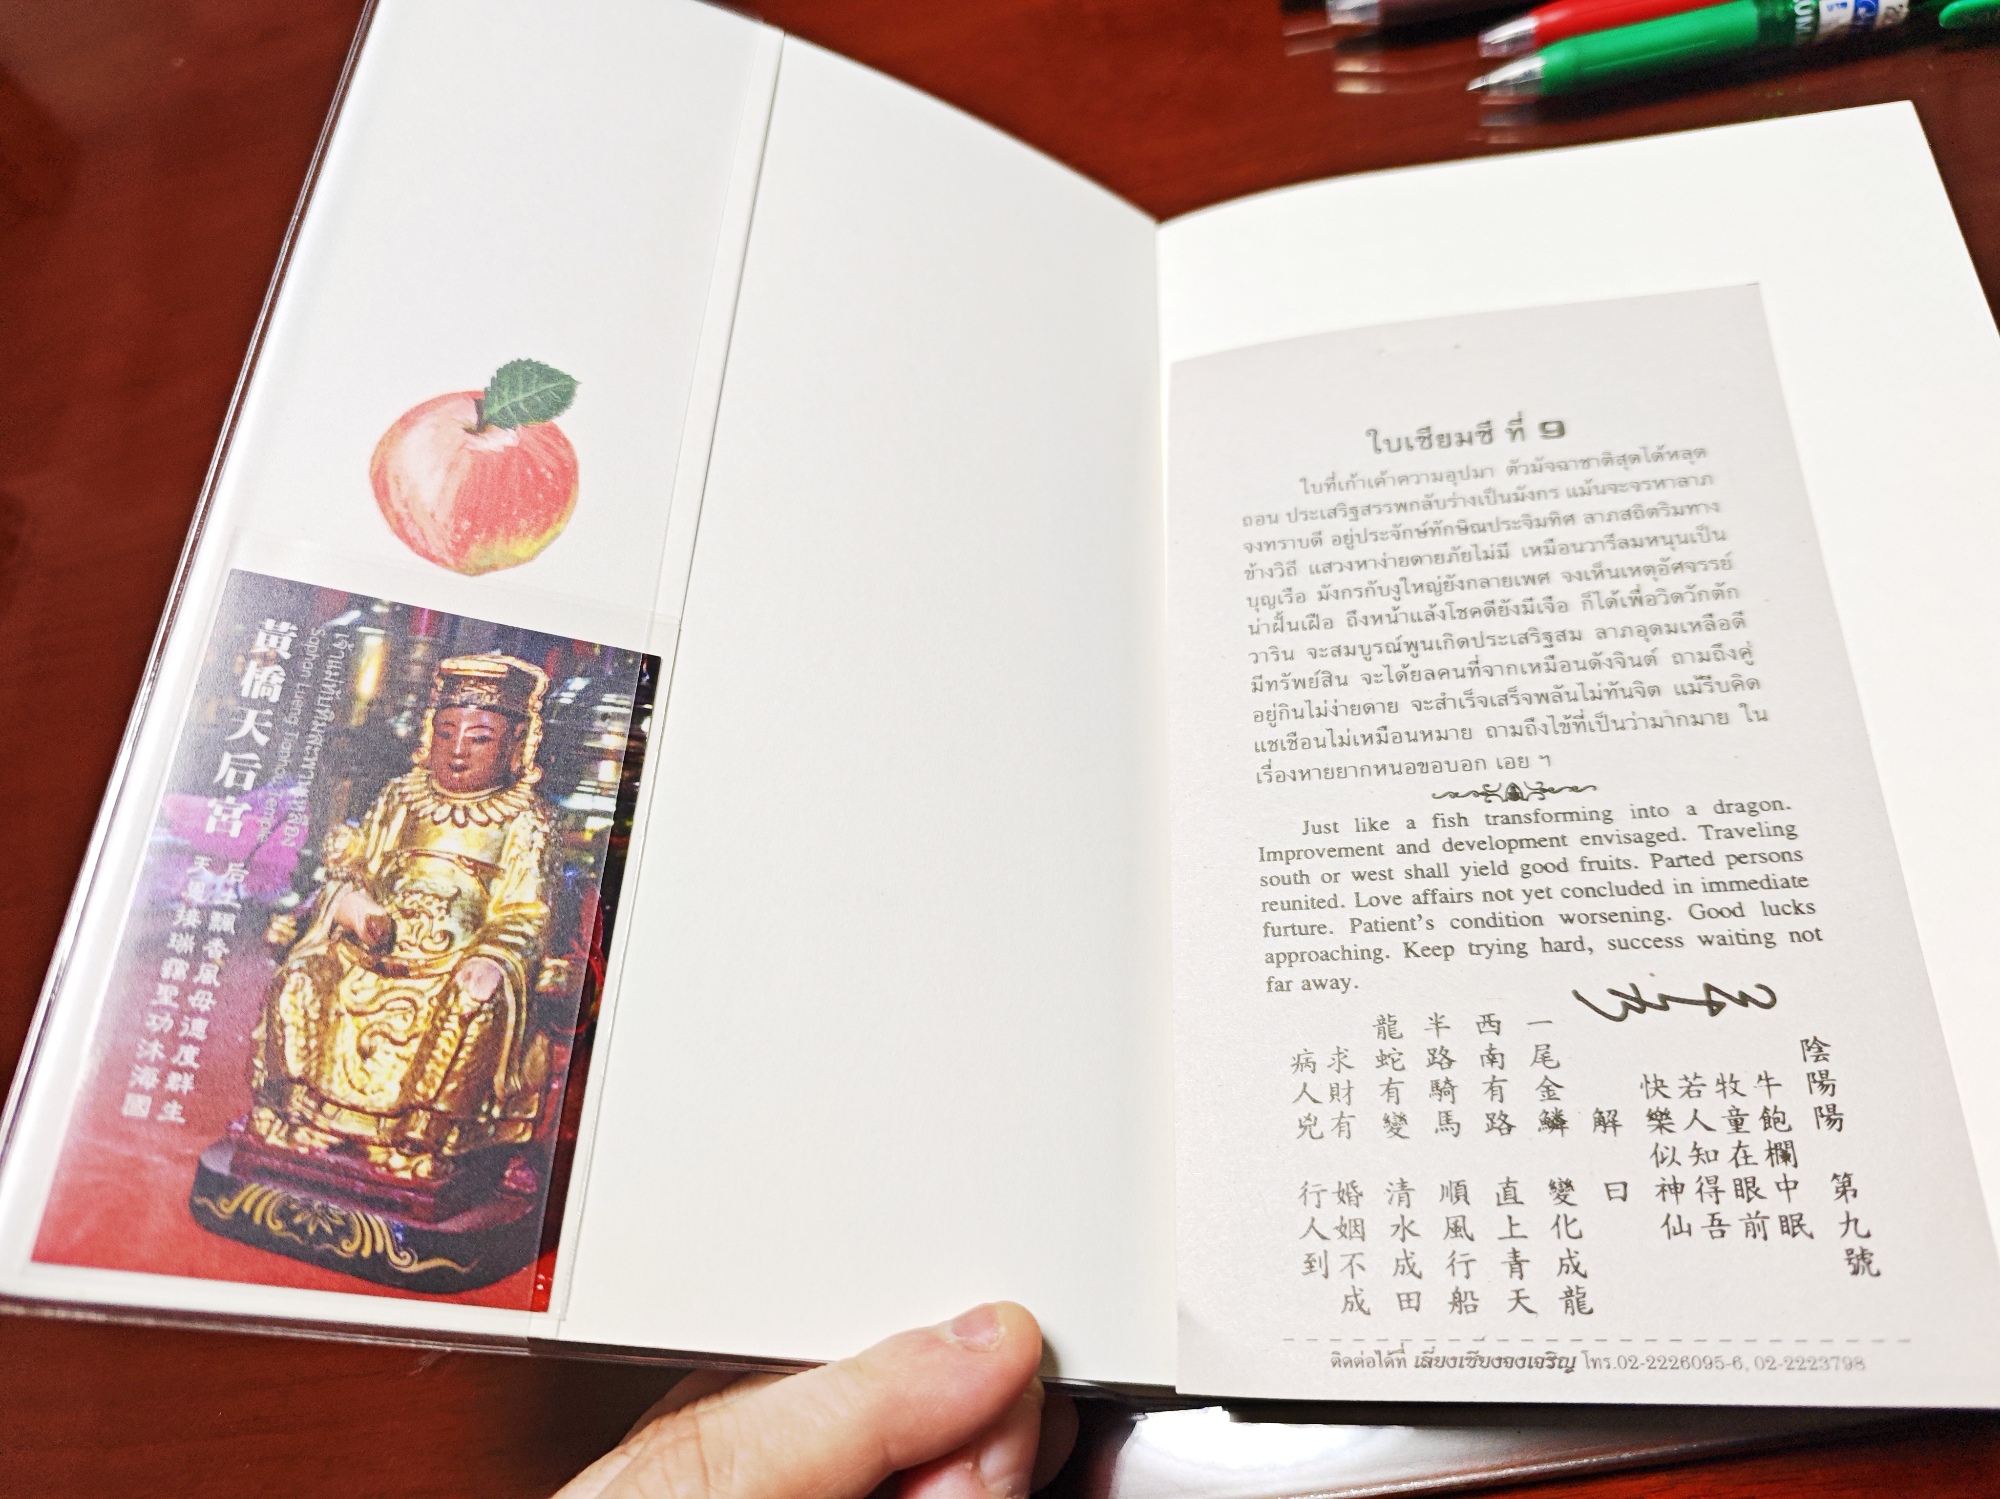 黃橋天后宮
Saphan Lueng Tianhou Temple
เจ้าแม่ทับทิมสะพานเหลือง
后土飄香風母德度群生
天恩瑞靄聖功沐海國
ใบเซียมซี ที่ 9
ใบที่เก้าเค้าความอุปมา ตัวมัจฉาชาติสุดได้หลุด
ถอน ประเสริฐสรรพกลับร่างเป็นมังกร แม้นจะจรหาลาภ
จงทราบดี อยู่ประจักษ์ทักษิณประจิมทิศ ลาภสถิตริมทาง
ข้างวิถี แสวงหาง่ายดายภัยไม่มี เหมือนวารีลมหนุนเป็น
บุญเรือ มังกรกับงูใหญ่ยังกลายเพศ จงเห็นเหตุอัศจรรย์
น่าฝั้นเฝือ ถึงหน้าแล้งโชคดียังมีเจือ ก็ได้เพื่อวิดวักตัก
วาริน จะสมบูรณ์พูนเกิดประเสริฐสม ลาภอุดมเหลือดี
มีทรัพย์สิน จะได้ยลคนที่จากเหมือนดังจินต์ ถามถึงคู่
อยู่กินไม่ง่ายดาย จะสำเร็จเสร็จพลันไม่ทันจิต แม้รีบคิด
แชเชือนไม่เหมือนหมาย ถามถึงไข้ที่เป็นว่ามากมาย ใน
เรื่องหายยากหนอขอบอก เอย ฯ
Just like a fish transforming into a dragon.
Improvement and development envisaged. Traveling
south or west shall yield good fruits. Parted persons
reunited. Love affairs not yet concluded in immediate
furture. Patient's condition worsening. Good lucks
approaching. Keep trying hard, success waiting not
far away.
陰陽陽 第九號
牛飽欄中眠
牧童在眼前
若人知得吾
快樂似神仙
解曰
一尾金鱗變化成龍
西南有路直上青天
半路騎馬順風行船
龍蛇有變清水成田
求財有婚姻不成
病人兇行人到
ติดต่อได้ที่ เลี่ยงเซียงจงเจริญ โทร.02-2226095-6, 02-2223798